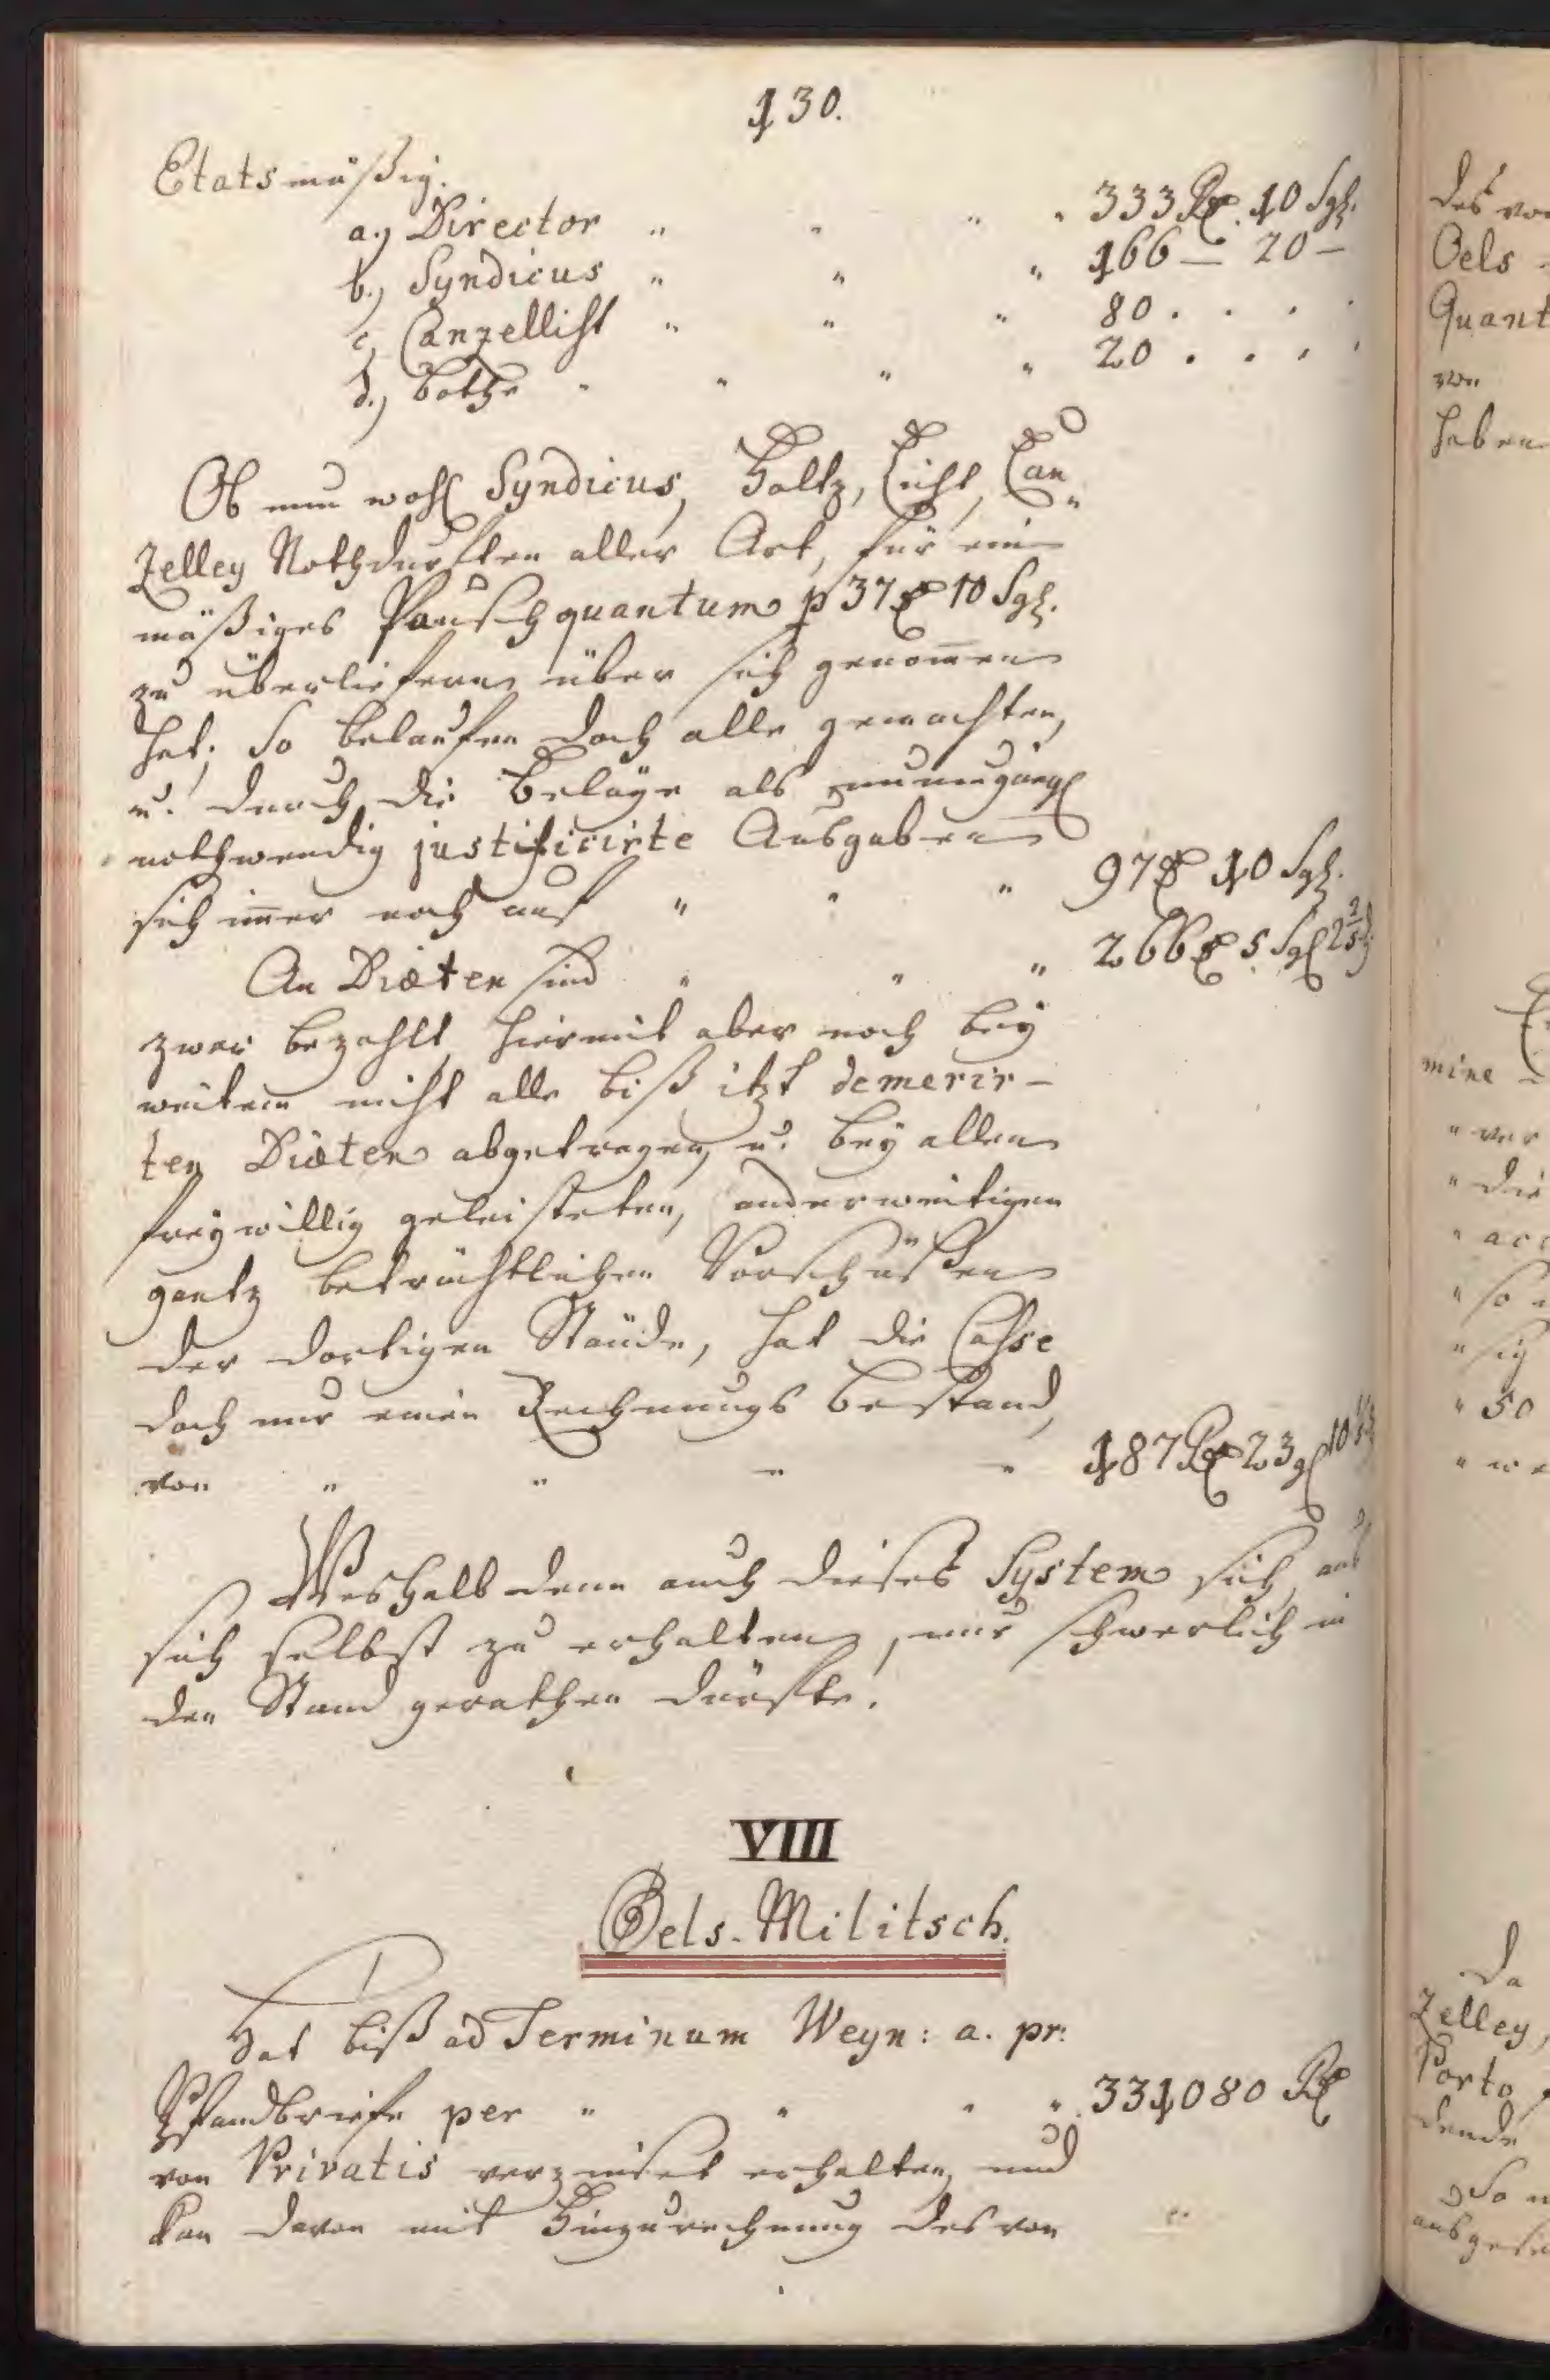 130.
Etatsmäßig.
a.) Director " " " " 333 Rth. 10 Sgl.
b.) Syndicus " " " 166 — 20 —
c.) Canzellist " " " 80 . . . .
d.) Bothe " " " " 20 . . . .
Ob nun wohl Syndicus, Holtz, Licht, Can„
zelley Nothdurften aller Art, für ein
mäßiges Pauschquantum p 37 rth 10 Sgl.
zu überliefern über sich genom̅en
hat; So belaufen doch alle gemachten,
u. durch die Beläge als
nothwendig justificirte Ausgaben
sich im̅er noch auf " " " 97 rth 10 Sgl.
An Diæten sind " " " 266 rth 5 Sgl 2 2/5 d.
zwar bezahlt, hiermit aber noch bey
weitem nicht alle biß itzt demerir-
ten Diæten abgetragen, u. bey allen
freywillig geleisteten, anderweitigen
gantz beträchtlichen Vorschüßen
der dortigen Stände, hat die Casse
doch nur einen Rechnungs Bestand,
von " " " " 187 Rth 23 gl 10
Weshalb denn auch dieses System sich aus
sich selbst zu erhalten, nur schwerlich in
den Stand gerathen dürfte.
VIII
Oels-Militsch.
Hat biß ad Terminum Weyn: a. pr:
Pfandbriefe per " " " " 331080 Rth
von Privatis verzinset erhalten, und
kan davon mit Hinzurechnung des von
des von
Oels
Quant
von
haben
mine
" ver
" die
" acc
" so
" sich
" 50
" we
Da
zelley,
Porto
dende
So
ausgese